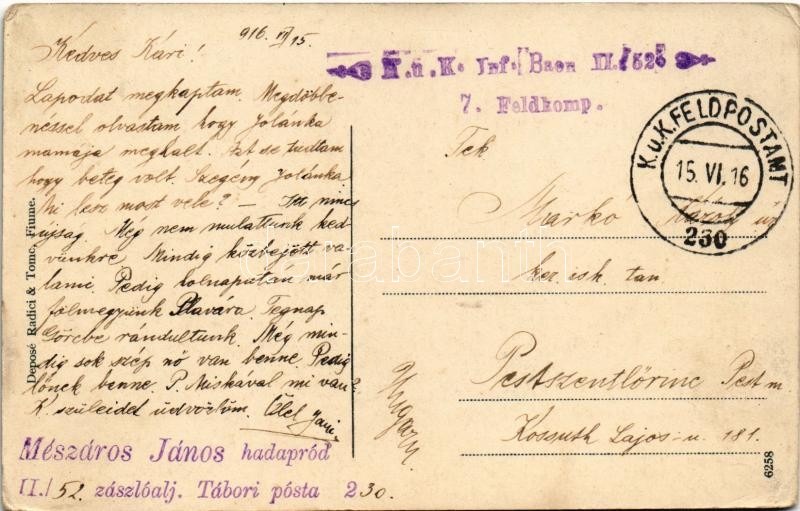 916 VI/15.
Kedves Kári!
Lapodat megkaptam. Megdöbbe-
néssel olvastam, hogy Jolánka
mamája meghalt. Ezt se tudtam
hogy beteg volt. Szegény Jolánka
Mi lesz most vele? – Itt nincs
ujság. Még nem mulattunk ked-
vünkre. Mindig közbejött va-
lami. Pedig holnapután már
fölmegyünk Plavára. Tegnap
Görcbe rándultunk. Még min-
dig sok szép nő van benne. Pedig
lőnek benne. P. Miskával mi van?
K. szüleidet üdvözlöm. Ölel Jani
Mészáros János hadapród
II./52. zászlóalj. Tábori pósta 230.
Deposé Radici & Tome, Fiume.
K. u. K. Inf. Baon II./52
7. Feldkomp.
K.u.K. FELDPOSTAMT
15. VI. 16
230
Tek
Markó úr
ker. isk. tan
Pestszentlőrinc Pest m.
Kossuth Lajos-u. 181.
6258
darabanth